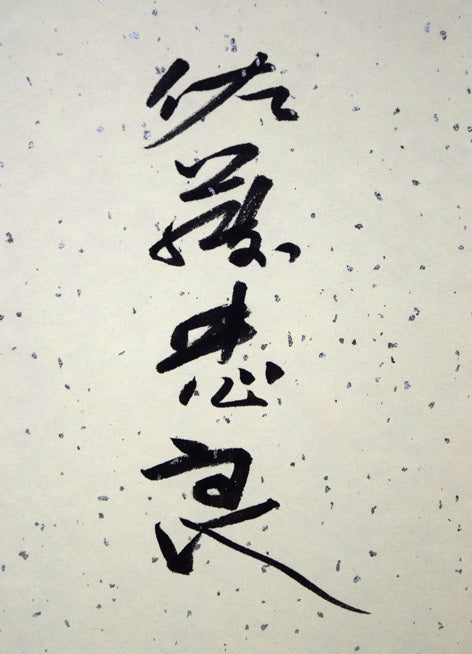 佐藤忠良